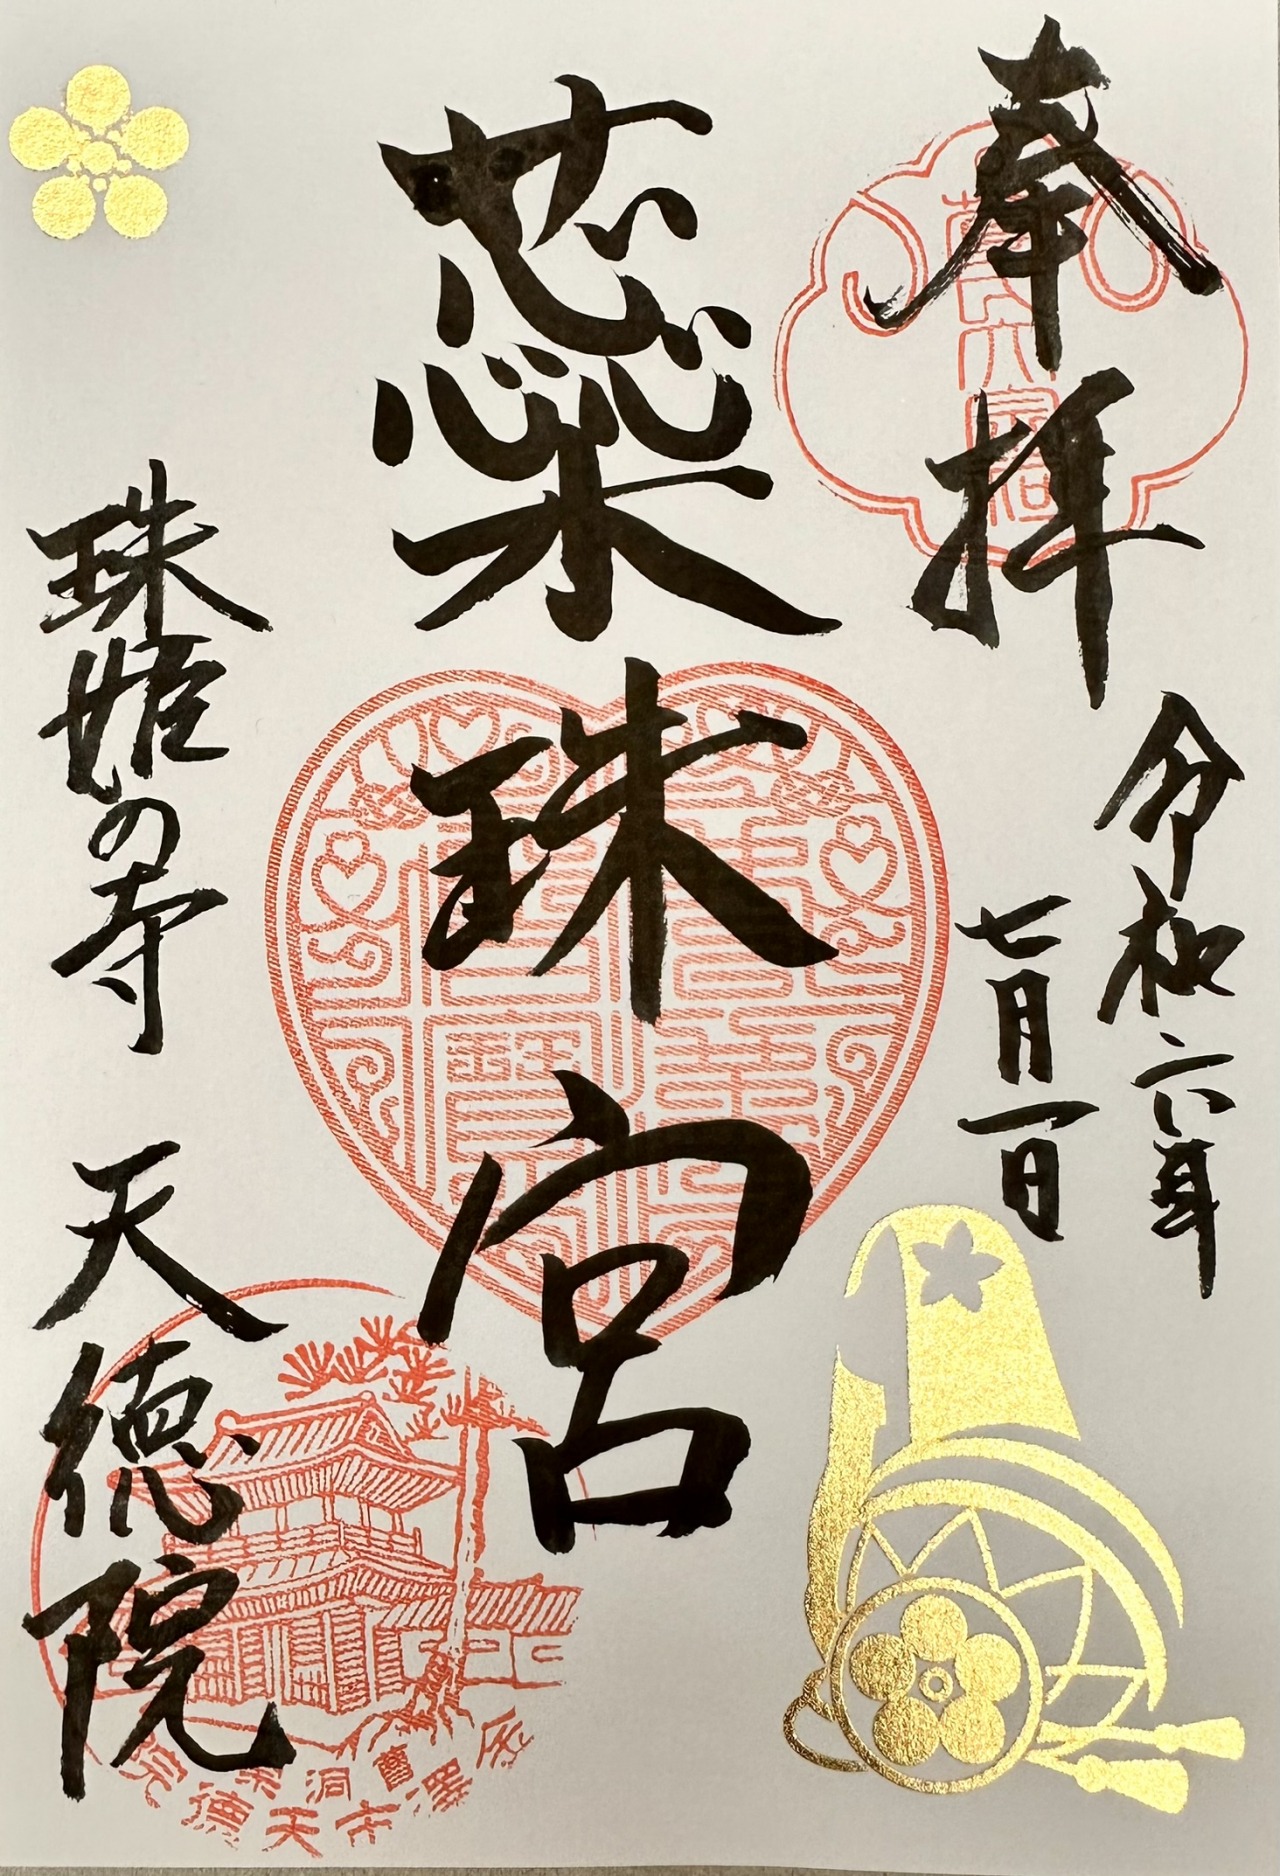 奉拝
令和六年
七月一日
蘂珠宮
珠姫の寺 天徳院
金澤市天徳院
曹洞宗